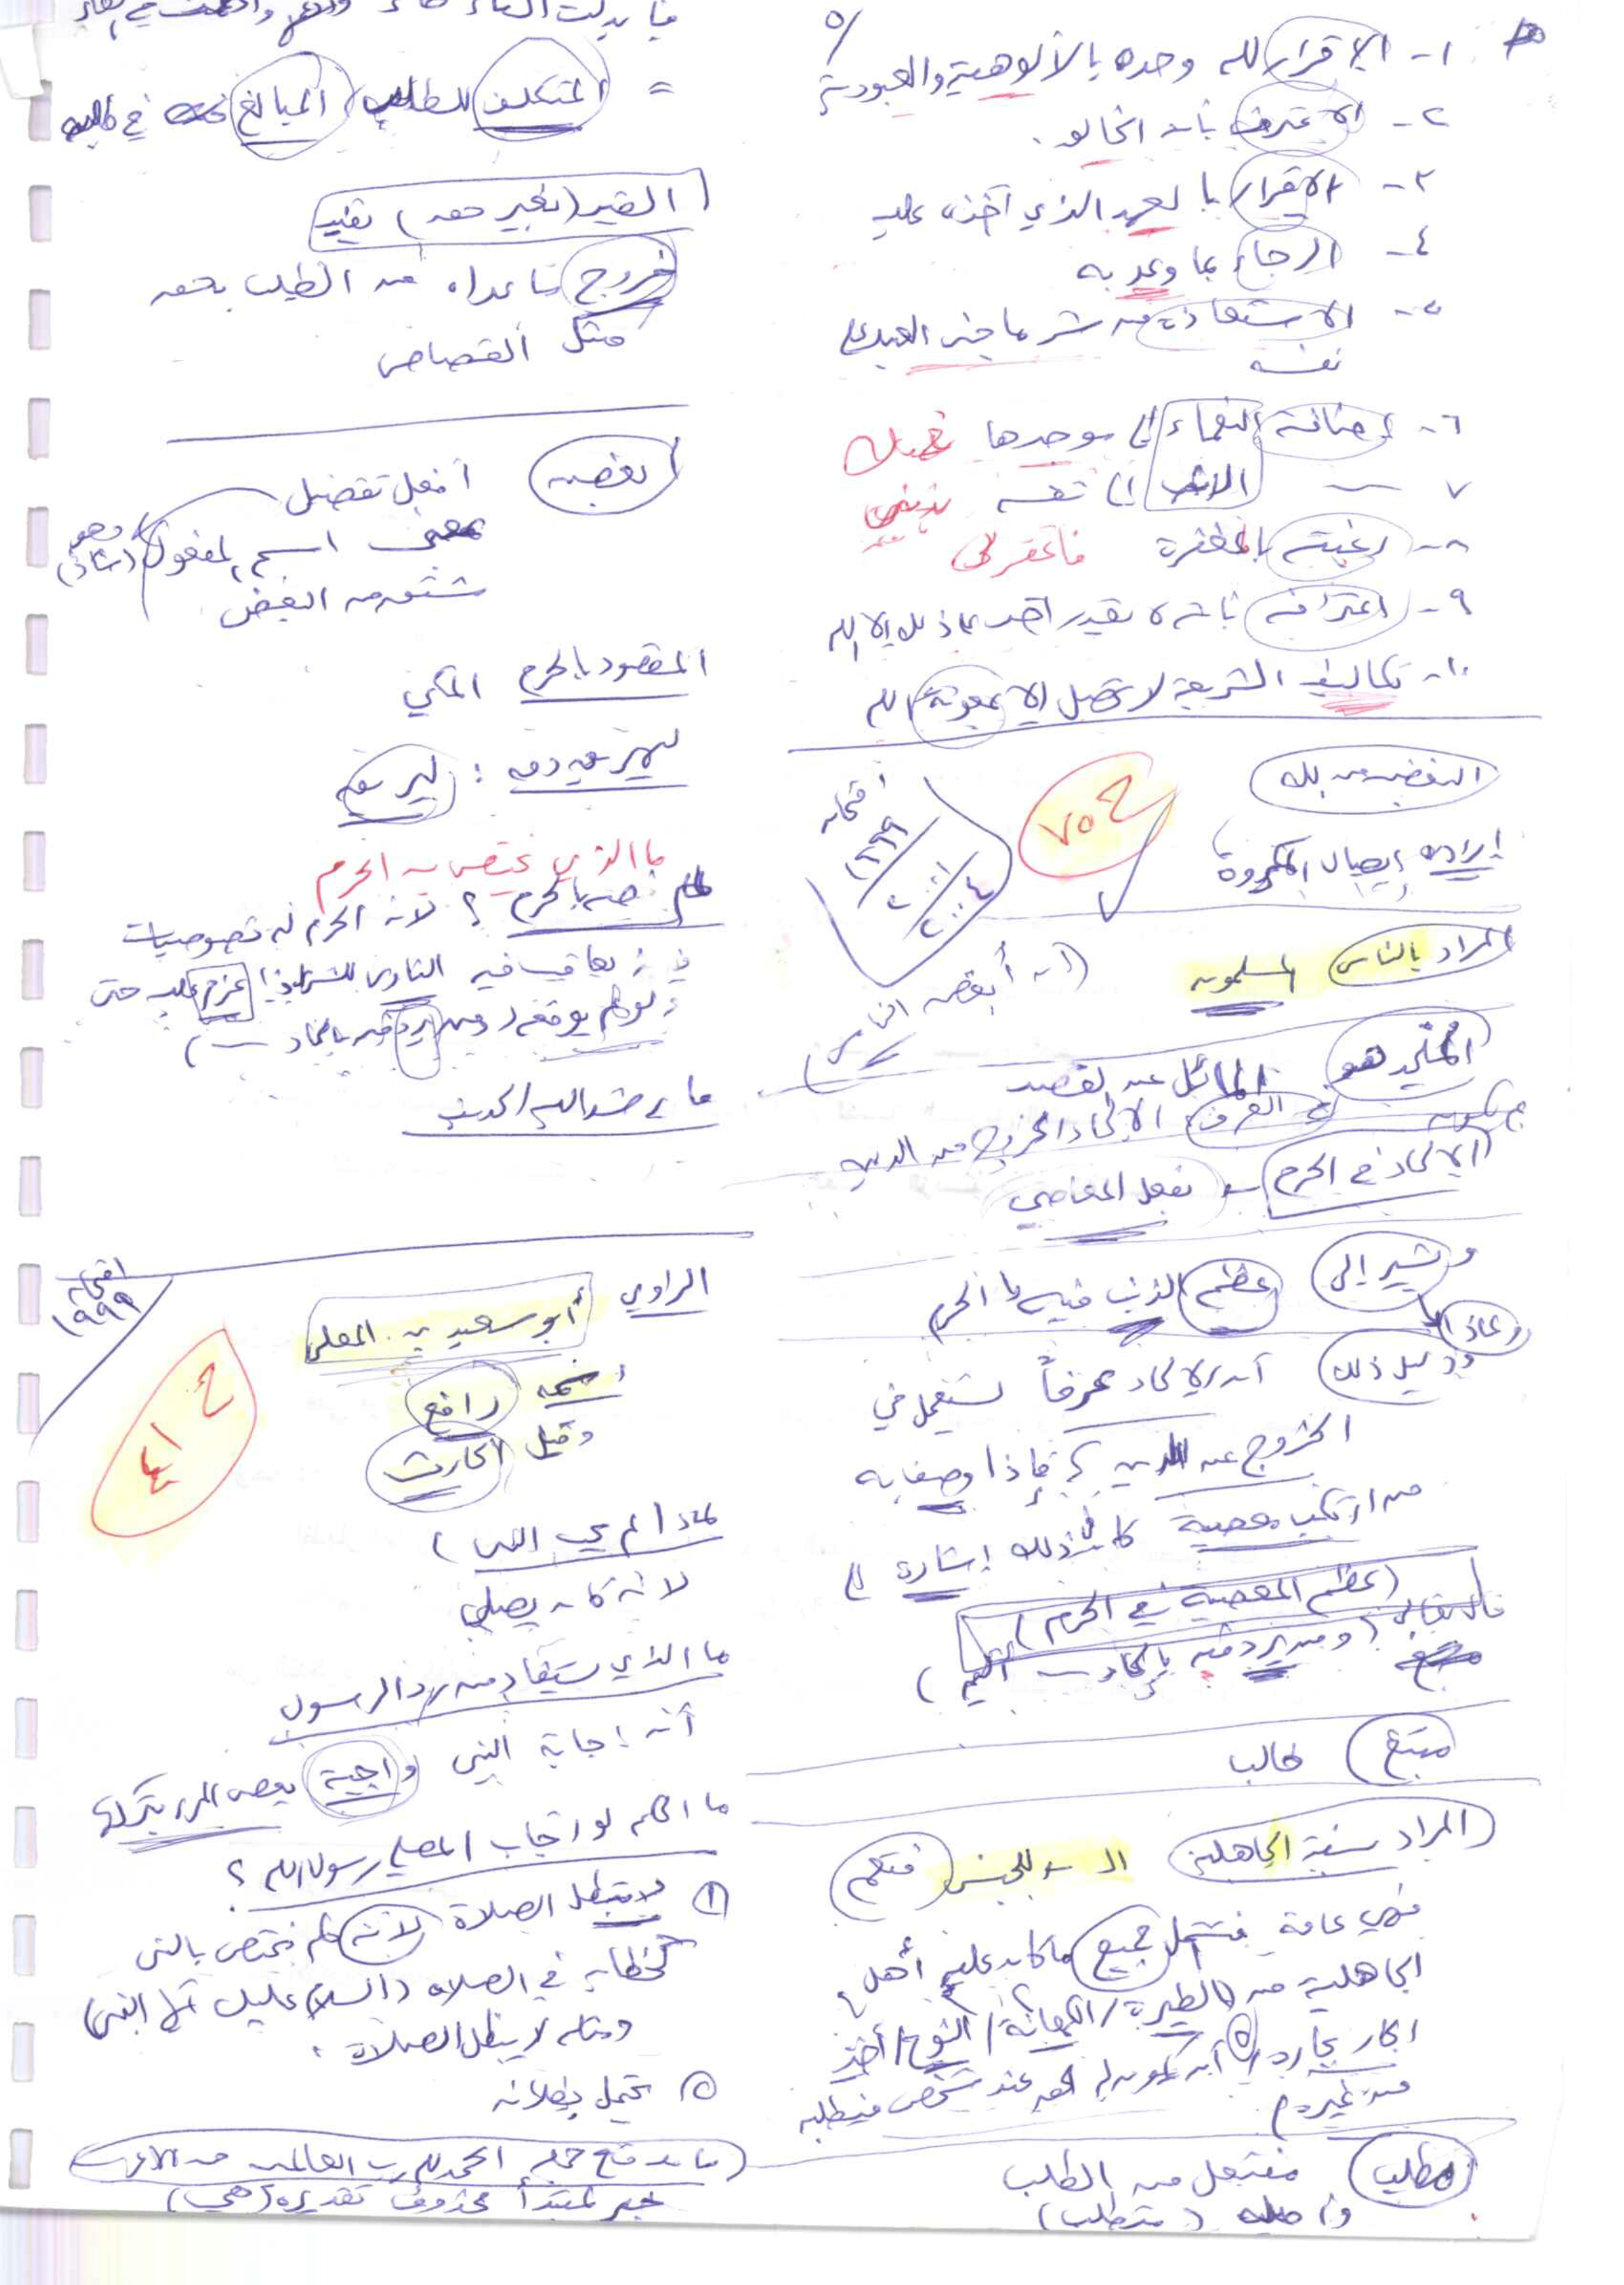 ٥/
١- الإقرار لله وحده بالألوهية والعبودية
٢- الاعتراف بأنه الخالق.
٣- الإقرار بالعهد الذي أخذه عليه
٤- الرجاء بما وعد به
٥- الاستعاذة من شر ما جنى العبد على
نفسه
٦- إضافة النعماء إلى موجدها
٧- الى نفسه بذنبي
٨- رغبته بالمغفرة فاغفر لي
٩- اعترافه بأنه لا يقدر أحد على ذلك إلا الله
١٠- تكاليف الشريعة لا تحصل إلا بمعونة الله
البغض من الله
إرادة إيصال المكروه
ح ٧٥
امتحان
١٩٩٩
٢٠٠١
٢٠٠٤
المراد بالناس المسلمون
(أنه أبغض الناس)
الملحد هو المائل عن القصد
في العرف الإلحاد الخروج من الدين
الإلحاد في الحرم بفعل المعاصي
ويشير إلى عظم الذنب فيه الحرم
ودليل ذلك أن الإلحاد عرفاً يستعمل في
الخروج عن الدين فإذا وصف به
من ارتكب معصية كان في ذلك إشارة إلى
(عظم المعصية في الحرم)
قال تعالى (ومن يرد فيه بإلحاد أليم)
مبتغ طالب
المراد سنة الجاهلية للجنس فتعم
فهي عامة فتشمل جميع ما كان عليه أهل
الجاهلية من الطيرة / الكهانة / النوح / أخذ
الجار بجاره / أن يكون له الحق عند شخص فيطلبه
من غيره
مطلب مفتعل من الطلب
وأصله (متطلب)
= المتكلف للطلب المبالغ في طلبه
القيد (بغير حق) يفيد
خروج ما عداه من الطلب بحق
مثل القصاص
أبغض أفعل تفضيل
بمعنى اسم المفعول وهو (شاذ)
مشتق من البغض
المقصود بالحرم المكي
ليهريق دمه : ليريقه
ما الذي يختص به الحرم
خصه بالحرم ؟ لأن الحرم له خصوصيات
يعاقب فيه الناوي للشر إذا عزم عليه حتى
ولو لم يوقعه (ومن يرد فيه بإلحاد)
ما يرشد إليه الحديث
امتحان
١٩٩٩
ح
٤١
الراوي أبو سعيد بن المعلى
اسمه رافع
وقيل الحارث
لماذا لم يجب النبي)
لأنه كان يصلي
ما الذي يستفاد من رد الرسول
أنه إجابة النبي واجبة يعصى المرء بتركها
ما الحكم لو أجاب المصلي رسول الله ؟
١ لا تبطل الصلاة لأنه حكم مختص بالنبي
كخطابه في الصلاة (السلام عليك أيها النبي)
ومثله لا يبطل الصلاة.
٢ يحتمل بطلانه
(ما موقع جملة الحمد لله رب العالمين من الإعراب
خبر لمبتدأ محذوف تقديره (هي)